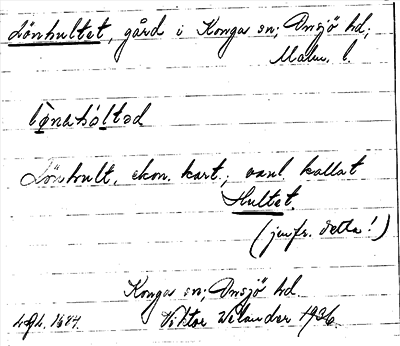 Lönhultet, gård i Konga sn; Onsjö hd;
Malm. l.
lø̀nahòltəd
Lönhult, ekon. kart.; vanl. kallat
Hultet.
(jmfr. detta!)
Konga sn; Onsjö hd.
Viktor Wilander 1936.